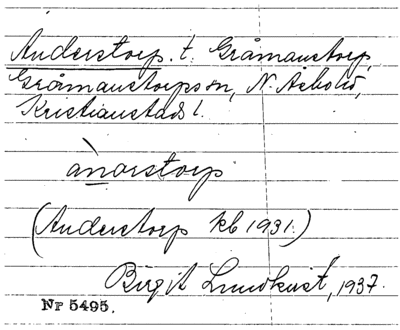 Anderstorp. t. Gråmanstorp,
Gråmanstorps sn, N. Åsbohd,
Kristianstads l.
ànarstorp
(Anderstorp kb 1931.)
Birgit Lundkvist, 1937.
Nr 5495.